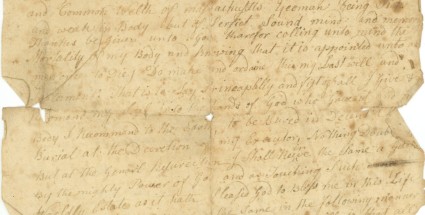 and Common Welth of massachusetts Yeoman being
and weak in Body but of Perfect Sound mind and memory
thanks be given unto God therfor calling unto mind the
mortality of my Body and knowing that it is appointed unto
Do make and ordain this my Last will and
That is to Say Principally and first of all I give &
hands of God who gave it
Body I Recommend to the to be Buried in Decent
Burial at the Discretion of my Executor Nothing Doubt
but at the General Resurrection I Shall Receive the Same a gain
by the mighty Power of God and as touching Such
worldly Estate as it hath pleased God to Bless me in this Life
the Same in the following manner